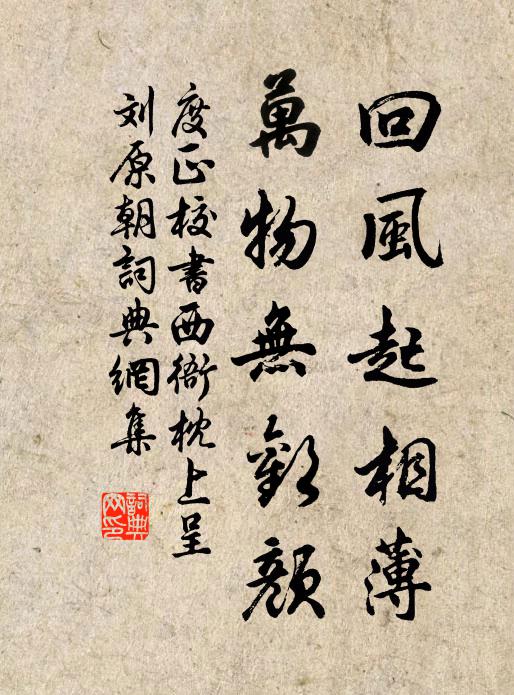 回風起相薄
萬物無歡顏
度正校書西衙枕上呈
刘原朝詞典網集
詞典网印